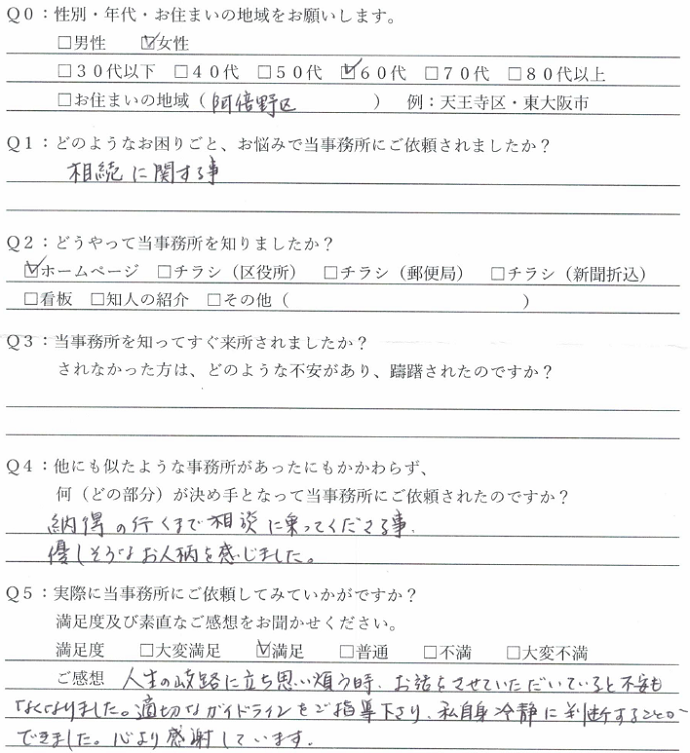 Q0：性別・年代・お住まいの地域をお願いします。
□男性 ☑女性
□30代以下 □40代 □50代 ☑60代 □70代 □80代以上
□お住まいの地域（ 阿倍野区 ） 例：天王寺区・東大阪市
Q1：どのようなお困りごと、お悩みで当事務所にご依頼されましたか？
相続に関する事
Q2：どうやって当事務所を知りましたか？
☑ホームページ □チラシ（区役所） □チラシ（郵便局） □チラシ（新聞折込）
□看板 □知人の紹介 □その他（ ）
Q3：当事務所を知ってすぐ来所されましたか？
されなかった方は、どのような不安があり、躊躇されたのですか？
Q4：他にも似たような事務所があったにもかかわらず、
何（どの部分）が決め手となって当事務所にご依頼されたのですか？
納得の行くまで相談に乗ってくださる事。
優しそうなお人柄を感じました。
Q5：実際に当事務所にご依頼してみていかがですか？
満足度及び素直なご感想をお聞かせください。
満足度 □大変満足 ☑満足 □普通 □不満 □大変不満
ご感想 人生の岐路に立ち思い煩う時、お話をさせていただいていると不安も
なくなりました。適切なガイドラインをご指導下さり、私自身冷静に判断することが
できました。心より感謝しています。